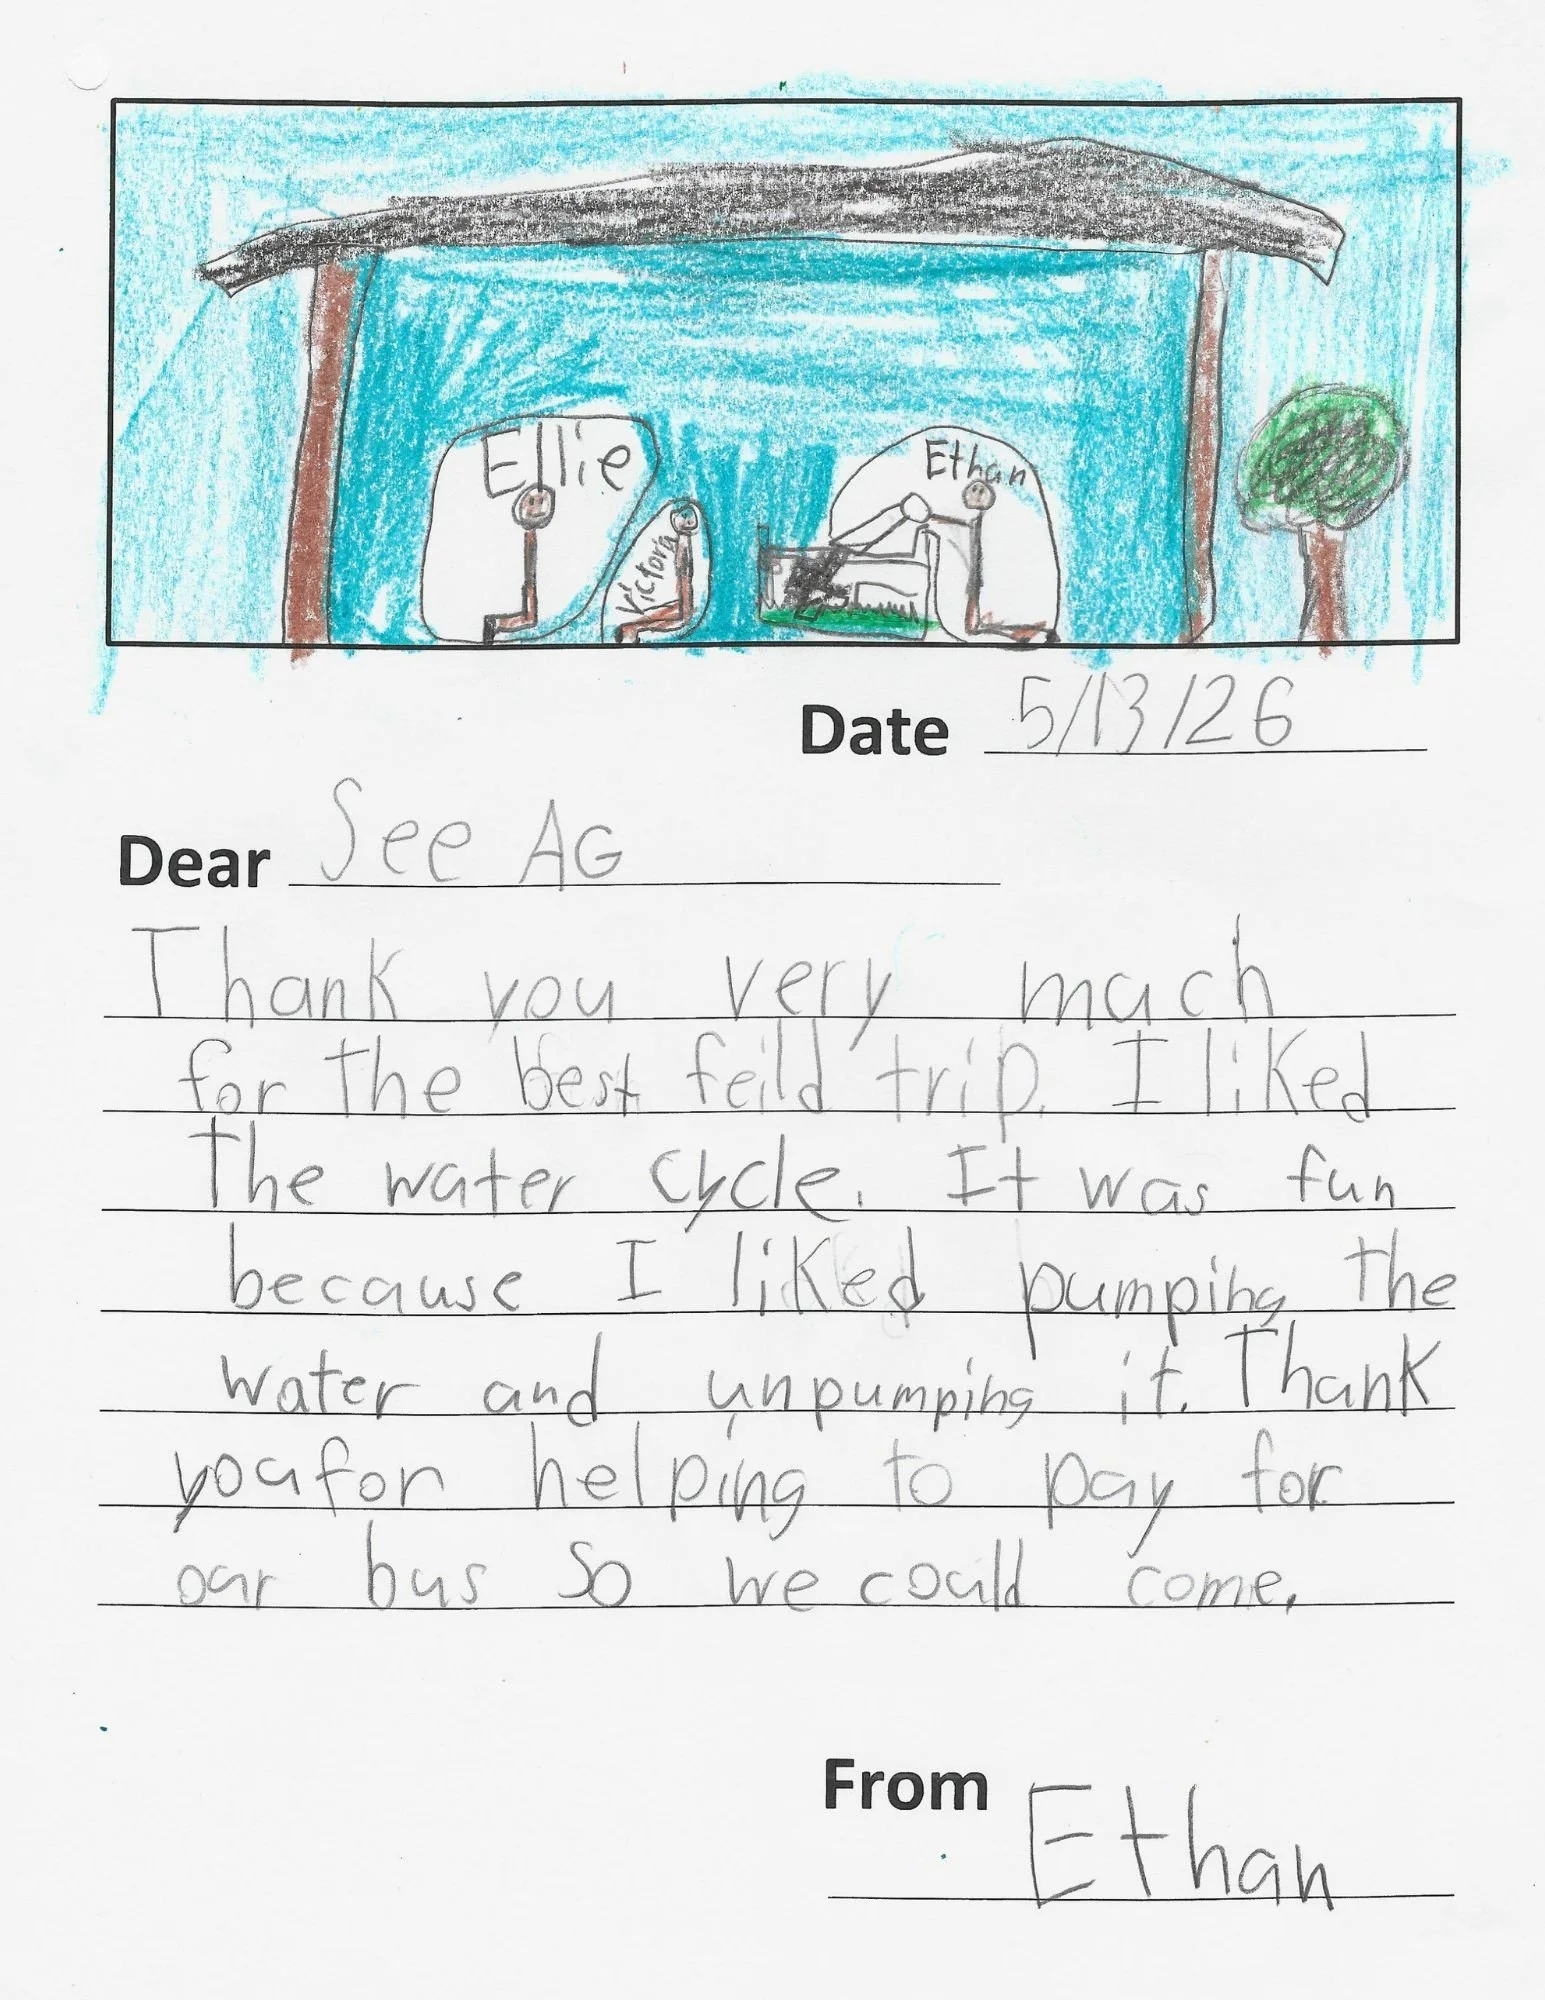 Ellie
Victora
Ethan
Date 5/13/26
Dear See AG
Thank you very much
for the best feild trip. I liked
The water cycle. It was fun
because I liked pumping the
water and unpumping it. Thank
you for helping to pay for
our bus so we could come.
From Ethan